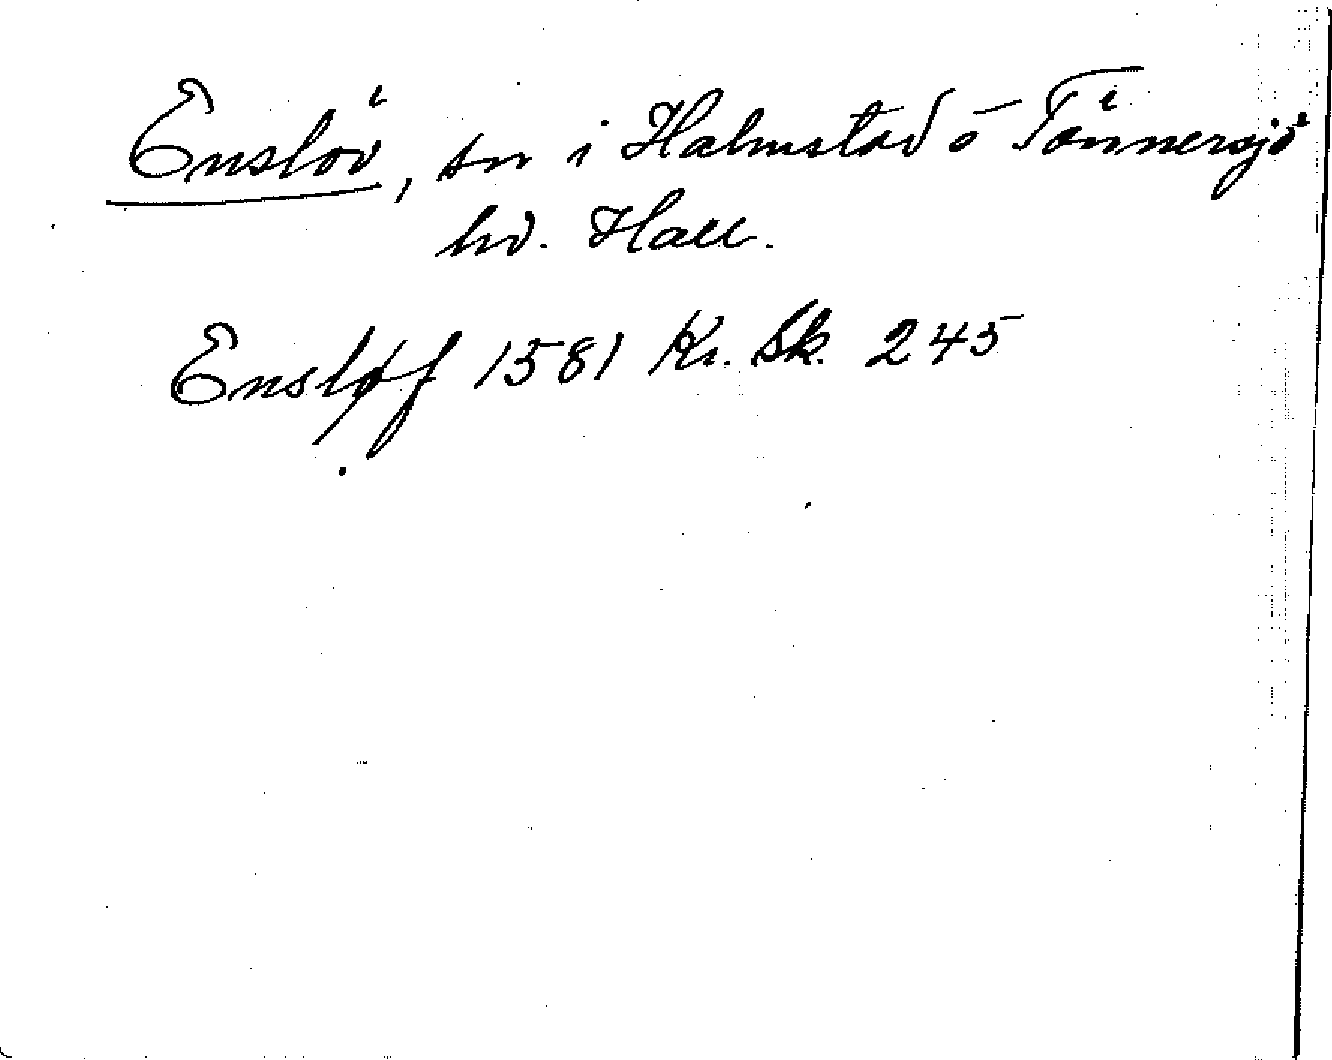 Enslöv, sn i Halmstad o Tönnersjö
hd. Hall.
Ensløf 1581 Kr. Sk. 245